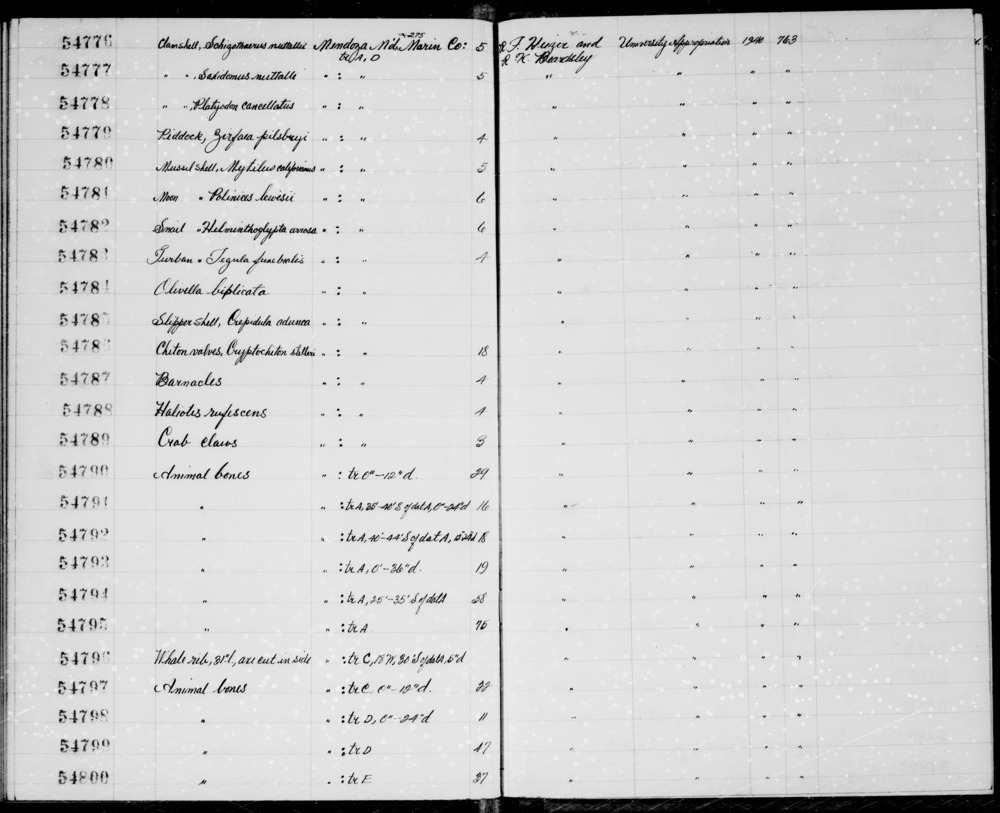 54776 Clam shell, Schizothaerus nuttallii Mendoza Md. 275 Marin Co: tr A, D 5 R. F. Heizer and R. K. Beardsley University Appropriation 1940 763
54777 " " , Saxidomus nuttalli " : " 5 " " " "
54778 " " , Platyodon cancellatus " : " " " " "
54779 Piddock, Zirfaea pilsbryi " : " 4 " " " "
54780 Mussel shell, Mytilus californianus " : " 5 " " " "
54781 Moon " Polinices lewisii " : " 6 " " " "
54782 Snail " Helminthoglypta arrosa " : " 6 " " " "
54783 Turban " Tegula funebralis " : " 4 " " " "
54784 Olivella biplicata " : " " " " "
54785 Slipper shell, Crepidula adunca " : " " " " "
54786 Chiton valves, Cryptochiton stelleri " : " 18 " " " "
54787 Barnacles " : " 4 " " " "
54788 Haliotes rufescens " : " 4 " " " "
54789 Crab claws " : " 3 " " " "
54790 Animal bones " : tr 0"-12"d. 29 " " " "
54791 " " : tr A, 35'-40' S of dat A, 0"-24"d 16 " " " "
54792 " " : tr A, 40'-44' S of dat A, 18 " " " "
54793 " " : tr A, 0'-36"d. 19 " " " "
54794 " " : tr A, 25'-35' S of dat A 58 " " " "
54795 " " : tr A 75 " " " "
54796 Whale rib, 31"l, axe cut in side " : tr C, 18'W, 30'S of dat A, 5"d " " " "
54797 Animal bones " : tr C 0"-12"d. 22 " " " "
54798 " " : tr D, 0"-24"d 11 " " " "
54799 " " : tr D 47 " " " "
54800 " " : tr E 37 " " " "